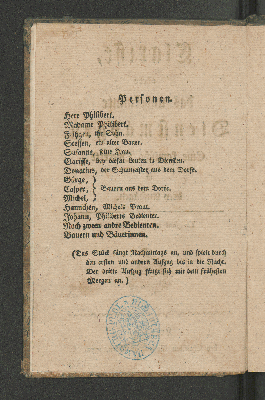 Personen.
Herr Philibert.
Madame Philibert.
ihr Sohn.
ein alter Bauer.
Susanne, seine Frau.
Clarisse, bey diesen Leuten in Diensten.
Donatius, der Schulmeister aus dem Dorfe.
Görge,
Casper,
Bauern aus dem Dorfe.
Michel,
Hannchen, Michels Braut.
Johann, Philiberts Bedienter.
Noch zween andre Bedienten.
Bauern und Bäuerinnen.
(Das Stück fängt Nachmittags an, und spielt durch
den ersten und andern Aufzug bis in die Nacht.
Der dritte Aufzug fängt sich mit dem frühesten
Morgen an.)